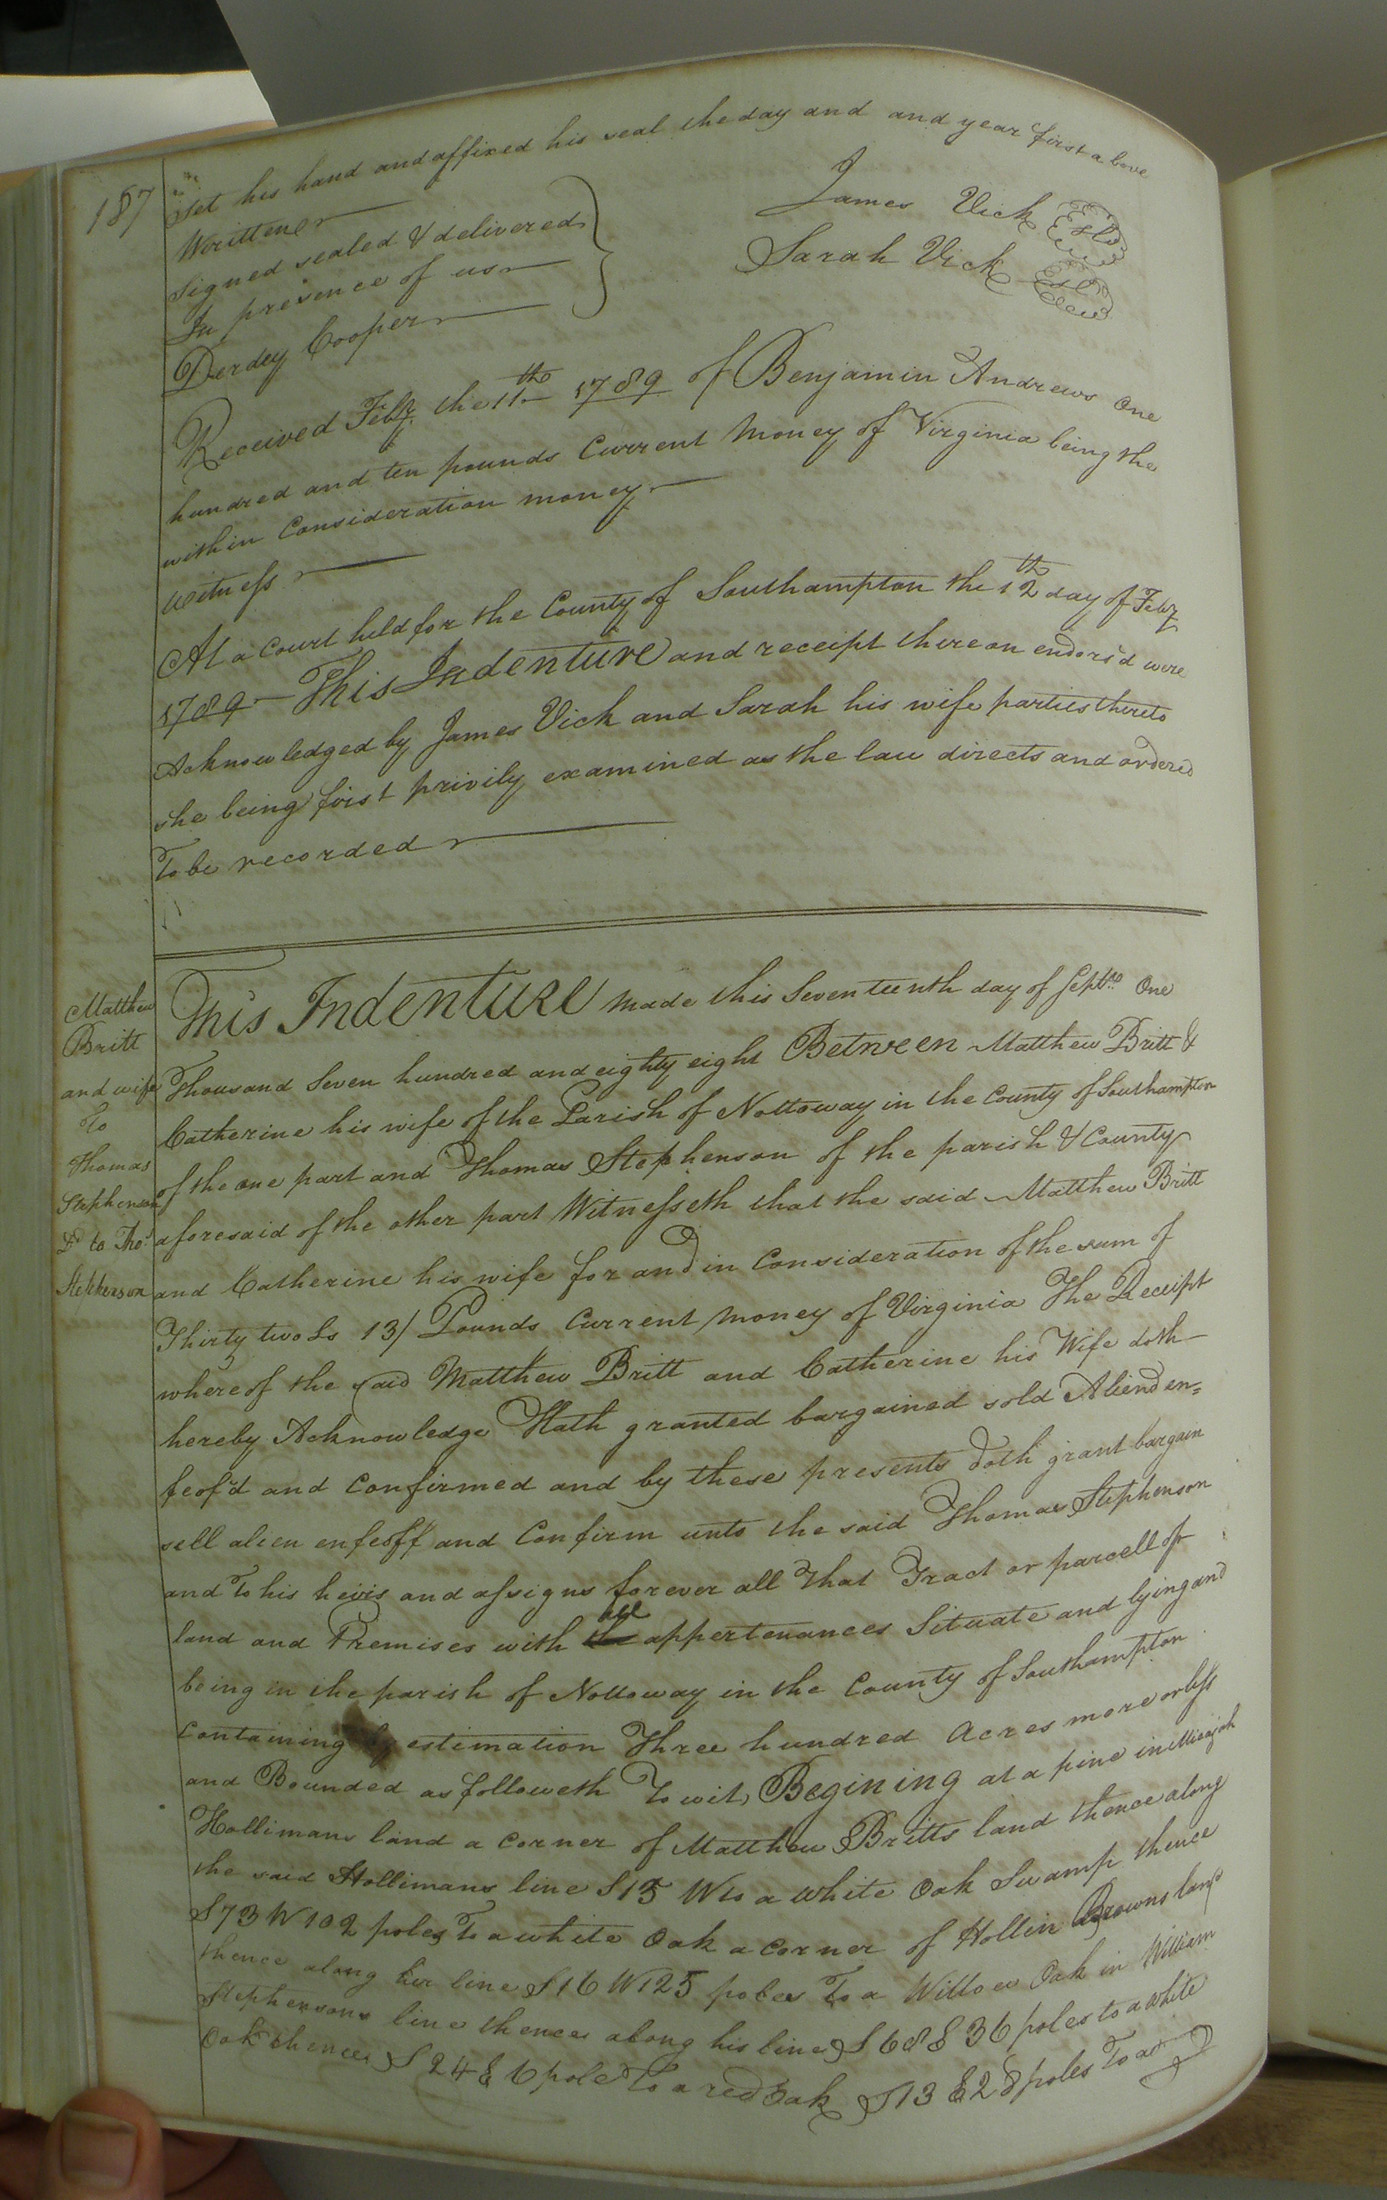 187
Set his hand and affixed his seal the day and and year first above
Written
Signed sealed & delivered
In presence of us
Derdey Cooper
James Vick
Sarah Vick
Received Feby the 11th 1789 of Benjamin Andrews One
hundred and ten pounds Current Money of Virginia being the
within Consideration money
Witness
At a Court held for the County of Southampton the 12th day of Feby
1789 This Indenture and receipt thereon endors'd were
Acknowledged by James Vick and Sarah his wife parties thereto
she being first privily examined as the law directs and ordered
To be recorded
Matthew
Britt
and wife
To
Thomas
Stephenson
Dd to Thos
Stephenson
This Indenture made this Seventeenth day of Septr One
Thousand Seven hundred and eighty eight Between Matthew Britt &
Catherine his wife of the Parish of Nottoway in the County of Southampton
of the one part and Thomas Stephenson of the parish & County
aforesaid of the other part Witnesseth that the said Matthew Britt
and Catherine his wife for and in Consideration of the sum of
Thirty two Ls 13/ Pounds Current money of Virginia The Receipt
whereof the said Matthew Britt and Catherine his Wife doth
hereby Acknowledge Hath granted bargained sold Aliend en=
feof'd and Confirmed and by these presents doth grant bargain
sell alien enfeoff and Confirm unto the said Thomas Stephenson
and To his heirs and assigns forever all That Tract or parcell of
land and Premises with all appertenances Situate and lying and
being in the parish of Nottoway in the County of Southampton
Containing by estimation Three hundred Acres more or less
and Bounded as followeth To wit, Begining at a pine in Micajah
Hollimans land a corner of Matthew Britts land thence along
the said Hollimans line S 15 W to a white Oak Swamp thence
S 73 W 102 poles To a white Oak a corner of Hollin Browns land
thence along her line S 16 W 125 poles To a Willow Oak in William
Stephensons line thence along his line S 68 E 36 poles to a white
Oak thence S 24 E 6 poles To a red Oak S 13 E 28 poles To a